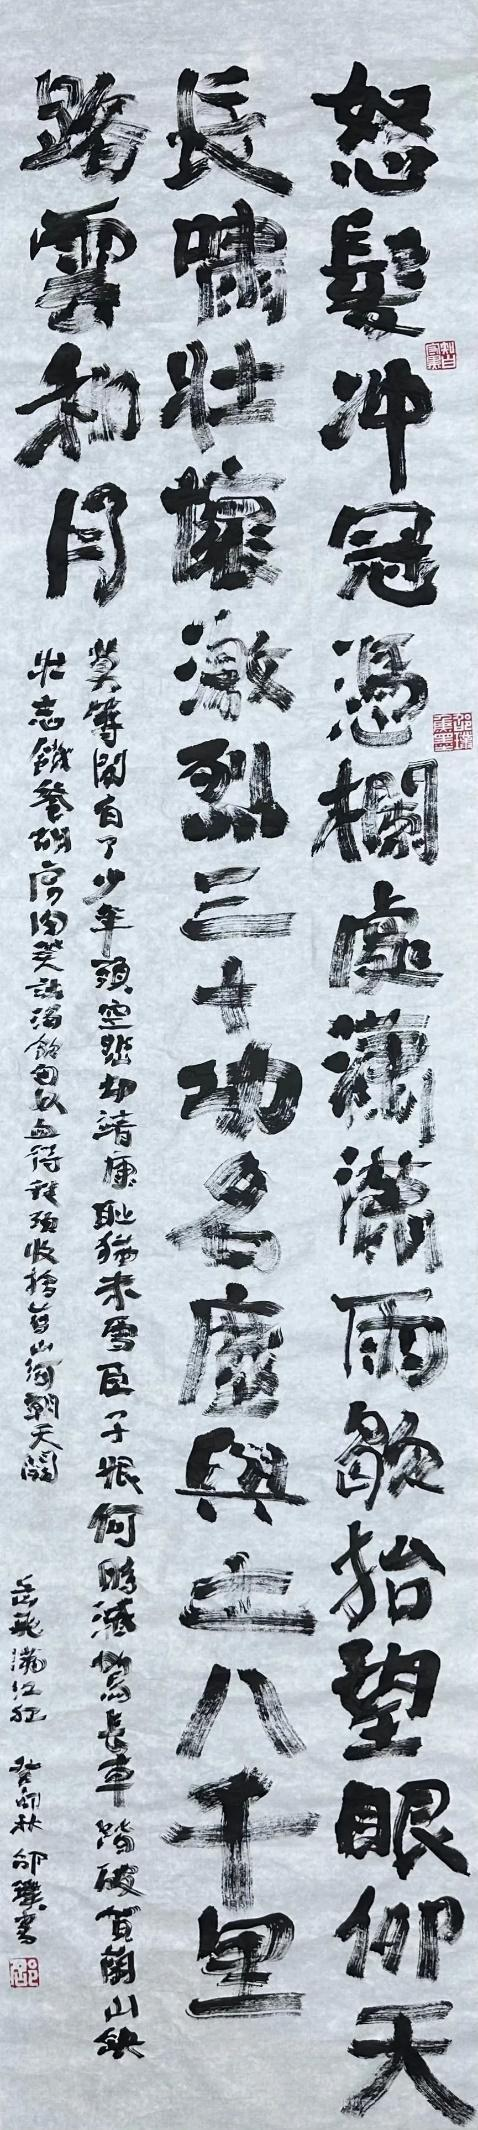 怒髮冲冠憑欄處瀟瀟雨歇抬望眼仰天
長嘯壯懷激烈三十功名塵與土八千里
路雲和月
莫等閒白了少年頭空悲切靖康恥猶未雪臣子恨何時滅駕長車踏破賀蘭山缺
壯志饑餐胡虜肉笑談渴飲匈奴血待從頭收拾舊山河朝天闕
岳飛滿江紅 癸卯秋 邵璞書
知白守黑
邵璞焦墨